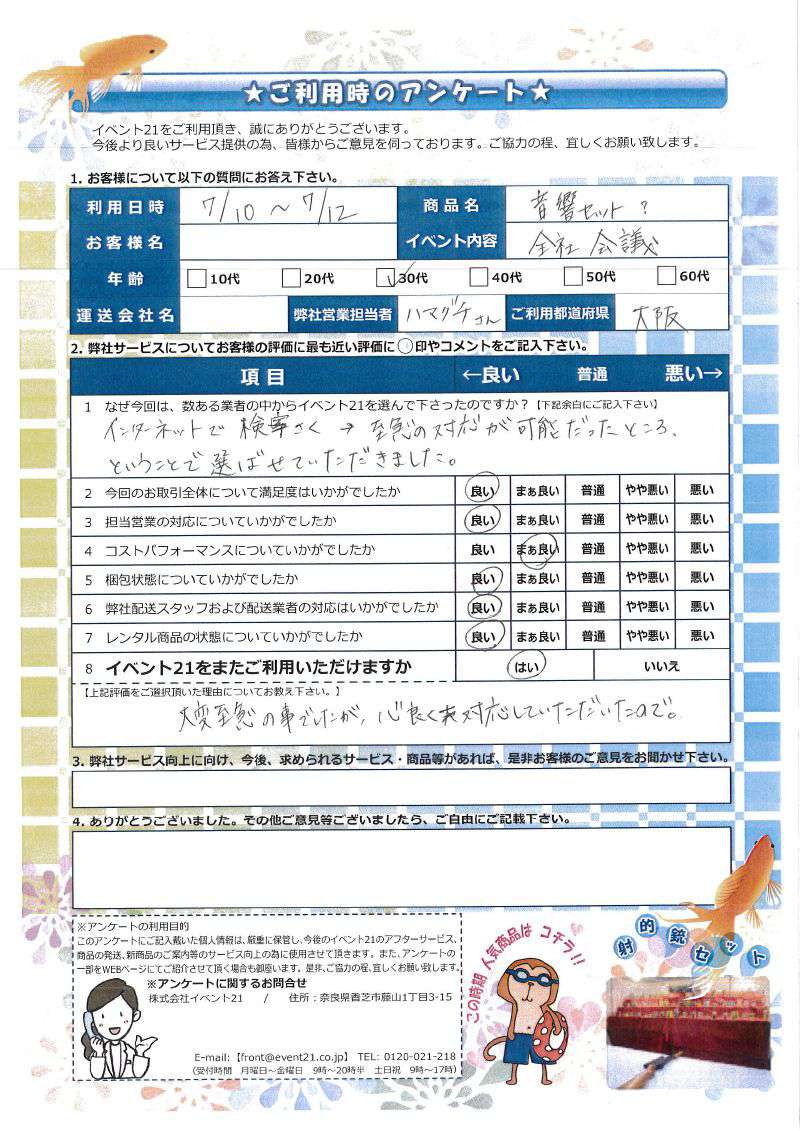 ★ご利用時のアンケート★
イベント21をご利用頂き、誠にありがとうございます。
今後より良いサービス提供の為、皆様からご意見を伺っております。ご協力の程、宜しくお願い致します。
1. お客様について以下の質問にお答え下さい。
利用日時 7/10 ～ 7/12 商品名 音響セット？
お客様名 イベント内容 全社会議
年齢 10代 20代 ✓30代 40代 50代 60代
運送会社名 弊社営業担当者 ハマグチさん ご利用都道府県 大阪
2. 弊社サービスについてお客様の評価に最も近い評価に○印やコメントをご記入下さい。
項目 ←良い 普通 悪い→
1 なぜ今回は、数ある業者の中からイベント21を選んで下さったのですか？【下記余白にご記入下さい】
インターネットで検索さく → 至急の対応が可能だったところ、
ということで選ばせていただきました。
2 今回のお取引全体について満足度はいかがでしたか 良い まぁ良い 普通 やや悪い 悪い
3 担当営業の対応についていかがでしたか 良い まぁ良い 普通 やや悪い 悪い
4 コストパフォーマンスについていかがでしたか 良い まぁ良い 普通 やや悪い 悪い
5 梱包状態についていかがでしたか 良い まぁ良い 普通 やや悪い 悪い
6 弊社配送スタッフおよび配送業者の対応はいかがでしたか 良い まぁ良い 普通 やや悪い 悪い
7 レンタル商品の状態についていかがでしたか 良い まぁ良い 普通 やや悪い 悪い
8 イベント21をまたご利用いただけますか はい いいえ
【上記評価をご選択頂いた理由についてお教え下さい。】
大変至急の事でしたが、心良く対応していただいたので。
3. 弊社サービス向上に向け、今後、求められるサービス・商品等があれば、是非お客様のご意見をお聞かせ下さい。
4. ありがとうございました。その他ご意見等ございましたら、ご自由にご記載下さい。
※アンケートの利用目的
このアンケートにご記入戴いた個人情報は、厳重に保管し、今後のイベント21のアフターサービス、
商品の発送、新商品のご案内等のサービス向上の為に使用させて頂きます。また、アンケートの
一部をWEBページにてご紹介させて頂く場合も御座います。是非、ご協力の程、宜しくお願い致します。
※アンケートに関するお問合せ
株式会社イベント21 / 住所：奈良県香芝市藤山1丁目3-15
E-mail:【front@event21.co.jp】 TEL: 0120-021-218
(受付時間 月曜日～金曜日 9時～20時半 土日祝 9時～17時)
この時期 人気商品は コチラ!!
射的銃セット